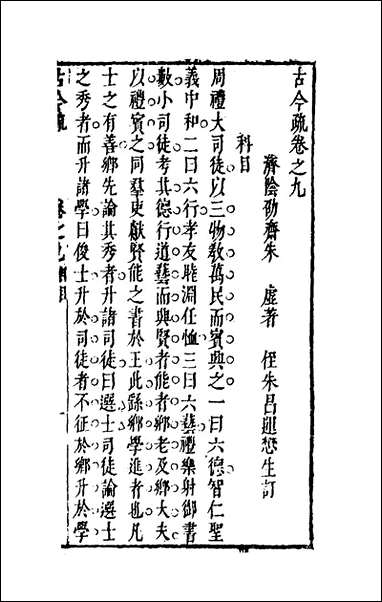 古今疏卷之九
濟陰劭齋朱 虛著 侄朱呂𨗇懋生訂
科目
周禮大司徒以三物教萬民而賓興之一曰六德智仁聖
義中和二曰六行孝友睦淵任恤三曰六藝禮樂射御書
數小司徒考其德行道藝而興賢者能者鄉老及鄉大夫
以禮賓之同羣吏獻賢能之書於王此繇鄉學進者也凡
士之有善鄉先論其秀者升諸司徒曰選士司徒論選士
之秀者而升諸學曰俊士升於司徒者不征於鄉升於學
古今疏 卷之九